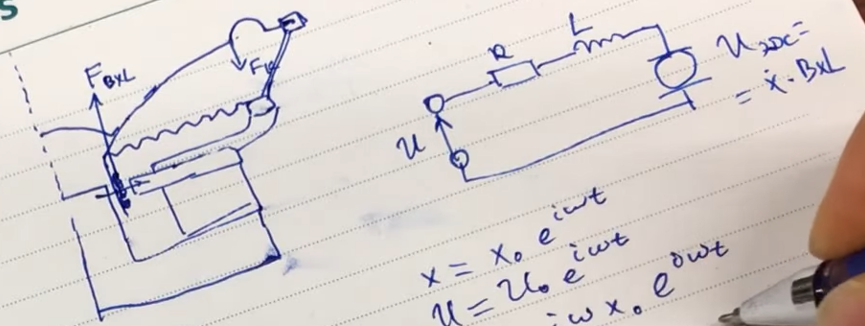 5
F_BxL
F_k
R
L
U
U_эдс =
= ẋ · BxL
x = x₀ e^{iωt}
U = U₀ e^{iωt}
iω x₀ e^{iωt}